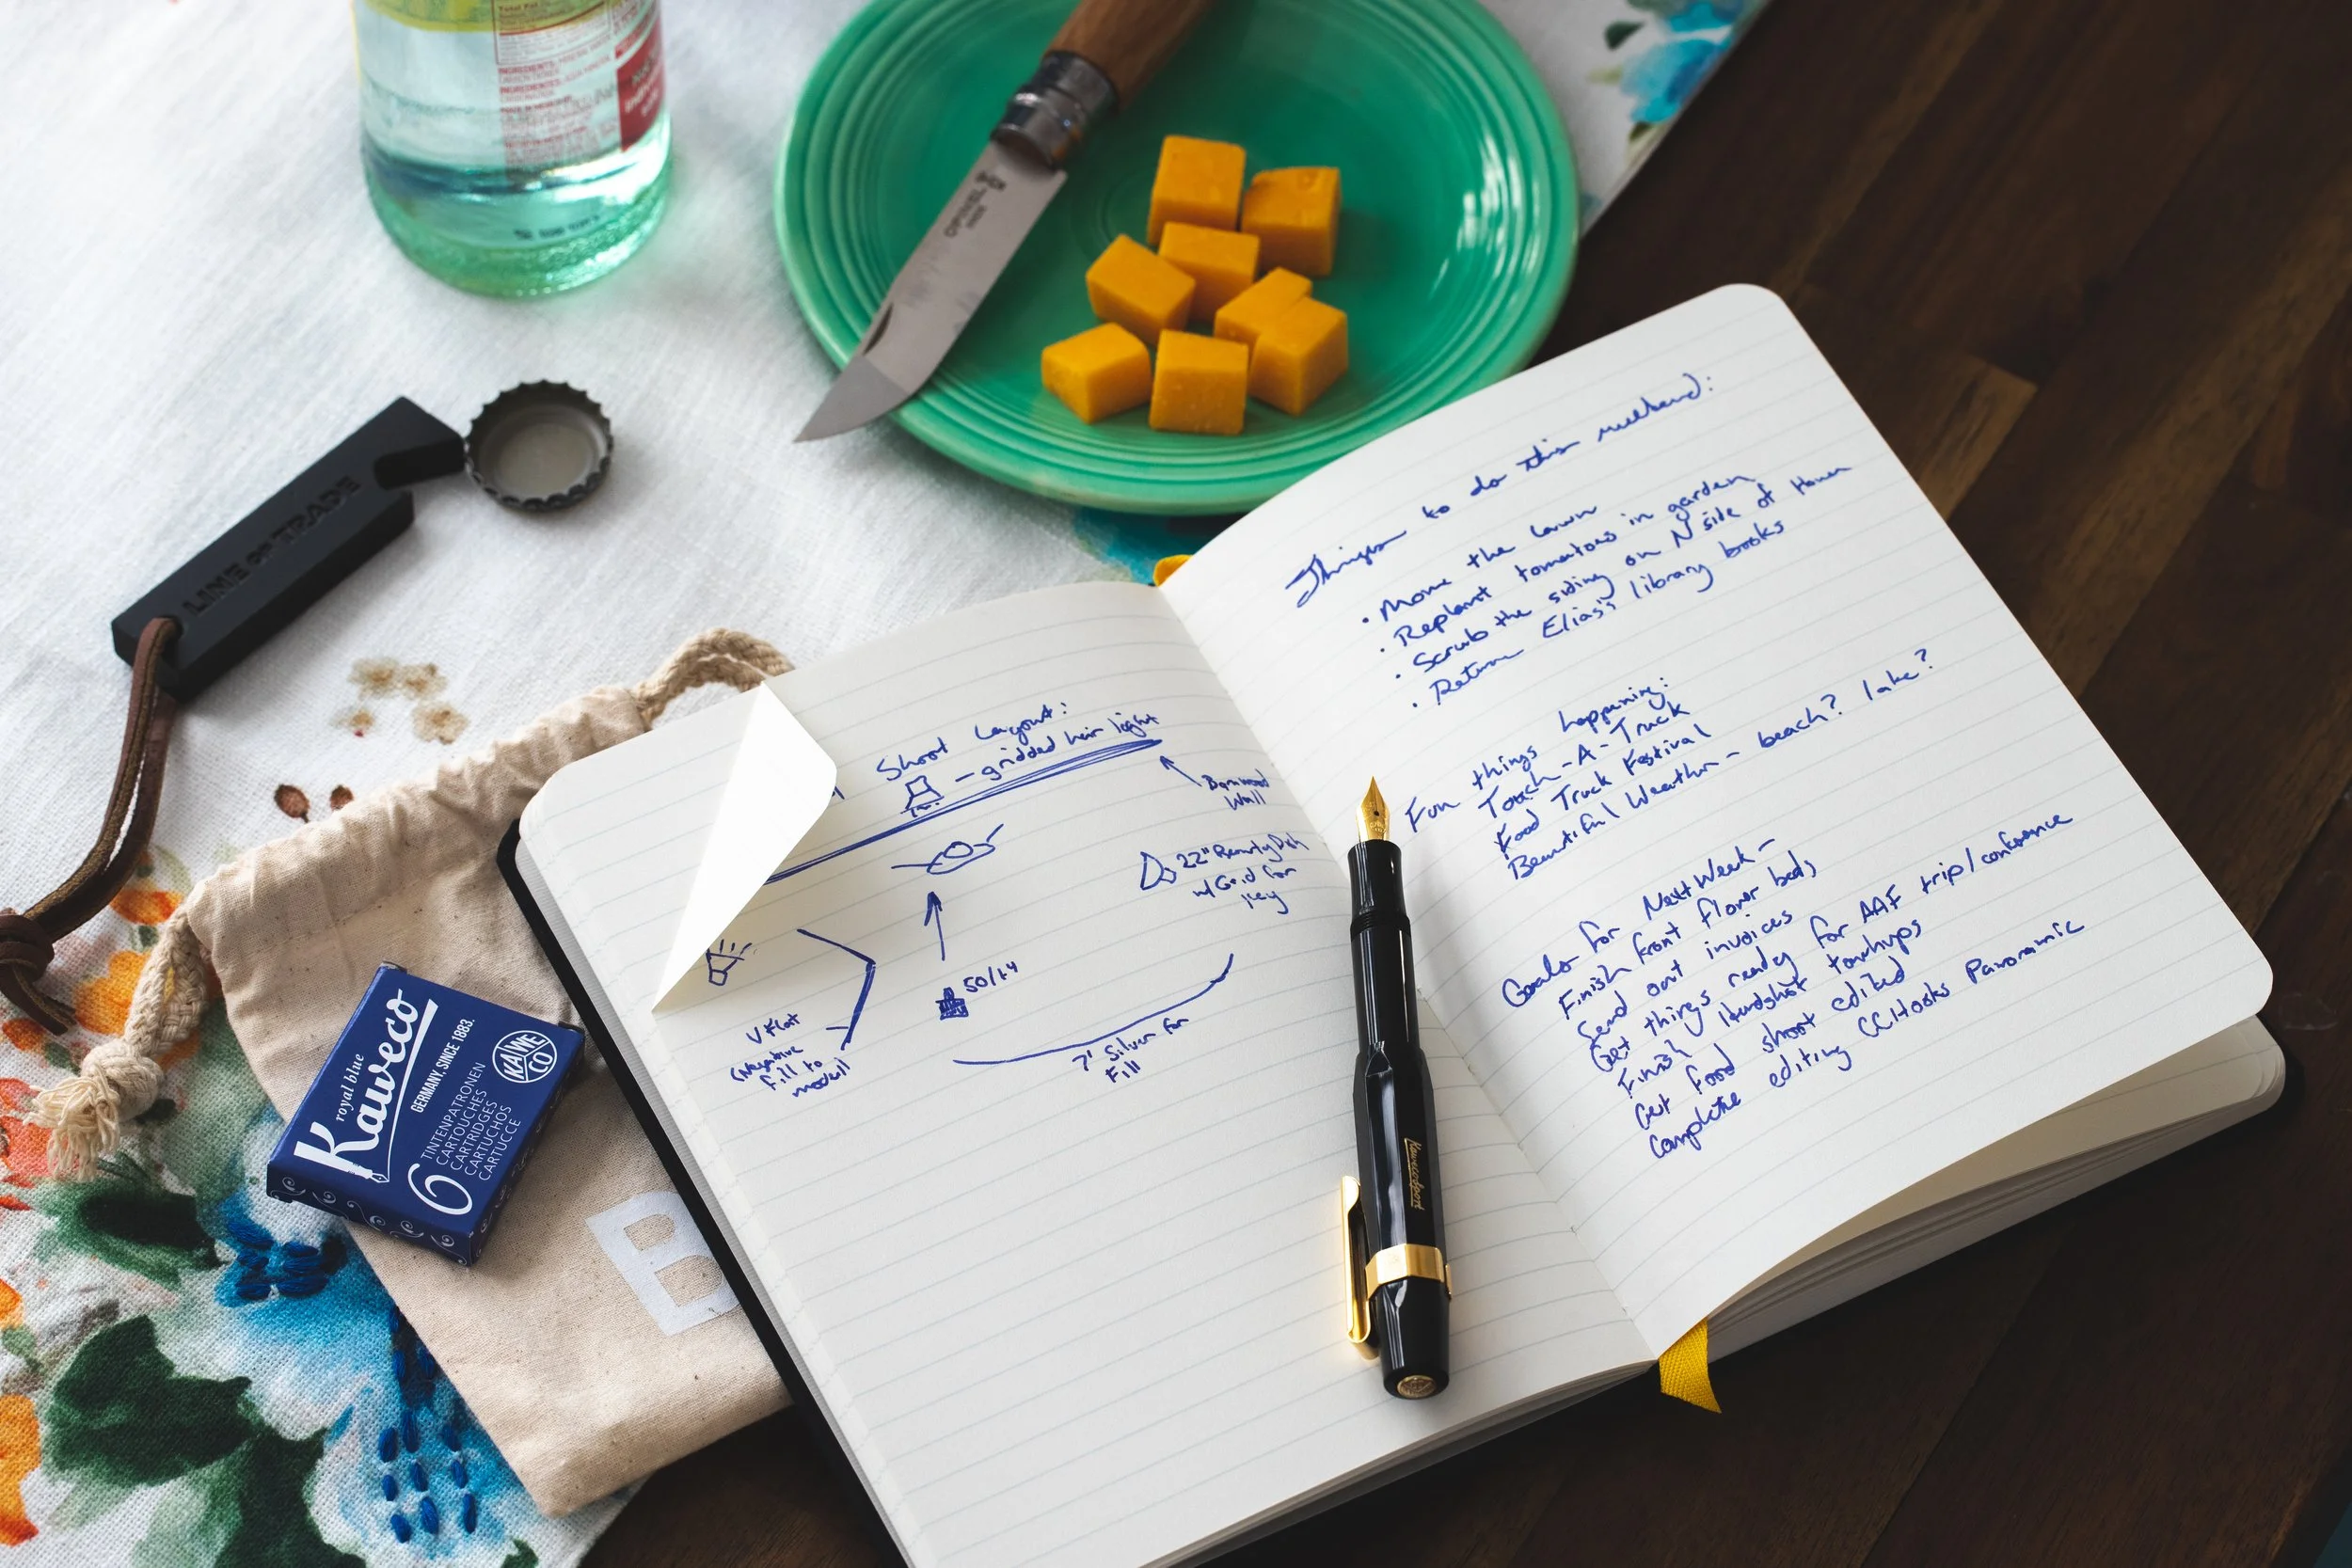 INGREDIENTS:
INGREDIENTES:
OPINEL
LIME OF TRADE
royal blue
Kaweco
GERMANY, SINCE 1883.
KAWE
CO
6
TINTENPATRONEN
CARTOUCHES
CARTRIDGES
CARTUCHOS
CARTUCCE
B
Shoot Layout:
- gridded hair light
Wall
22" Beauty Dish
w/ Grid for
key
50/1.4
V Flat
(Negative
fill to
model)
7' Silver for
Fill
Kaweco Sport
Things to do this weekend:
• Mow the lawn
• Replant tomatoes in garden
• Scrub the siding on N side of House
• Return Elias's library books
Fun things happening:
Touch-A-Truck
Food Truck Festival
Beautiful Weather - beach? lake?
Goals for Next Week -
Finish front flower beds
Send out invoices
Get things ready for AAF trip/conference
Finish Headshot touchups
Get food shoot edited
Complete editing Panoramic